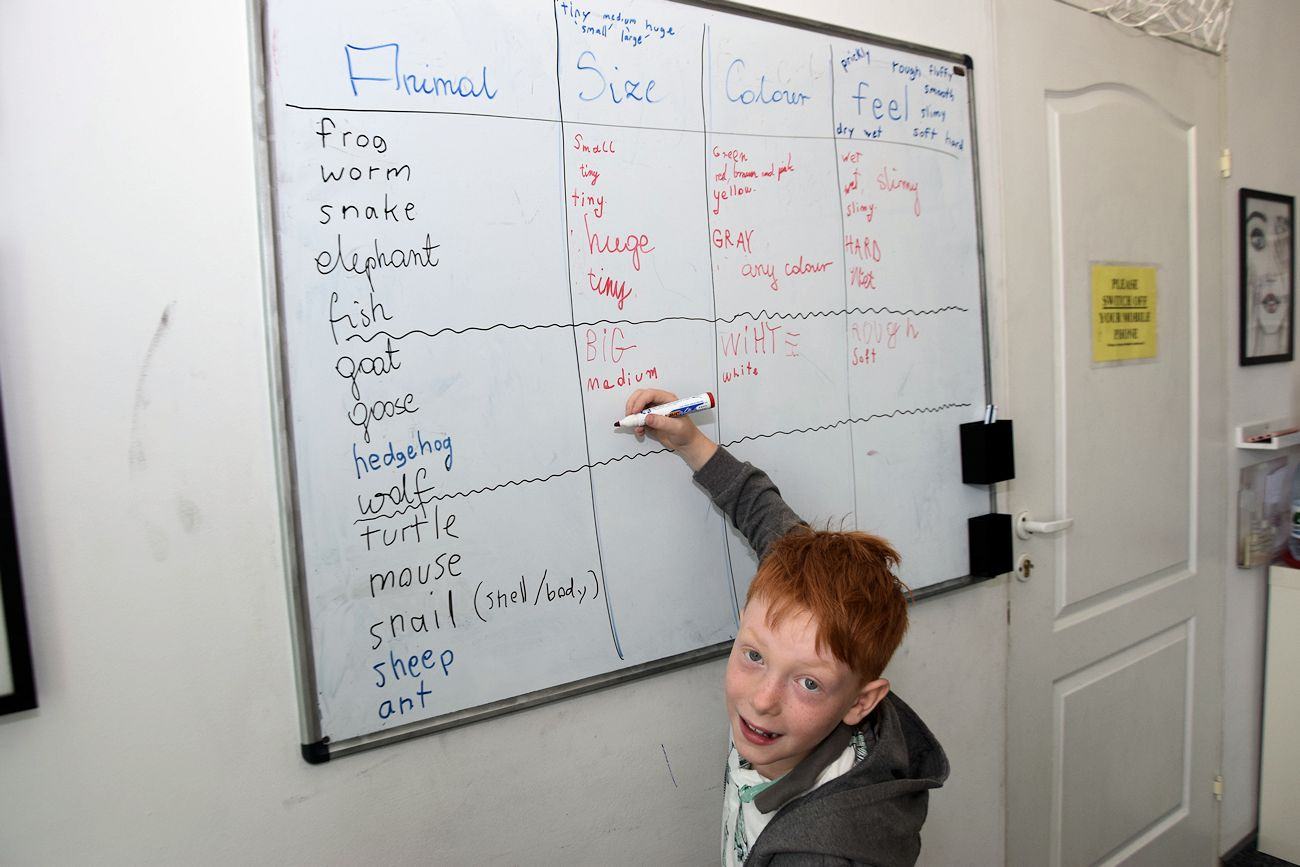 tiny medium huge
small large
Animal Size Colour feel
prickly rough fluffy
smooth
slimy
dry wet soft hard
frog small Green wet
worm tiny red, brown and pink wet, slimmy
snake tiny. yellow. slimy.
elephant huge GRAY HARD
fish tiny. any colour Wet
goat BIG WiHTE ROUgh
goose Medium white Soft
hedgehog
wolf
turtle
mouse
snail (shell/body)
sheep
ant
PLEASE
SWITCH OFF
YOUR MOBILE
PHONE